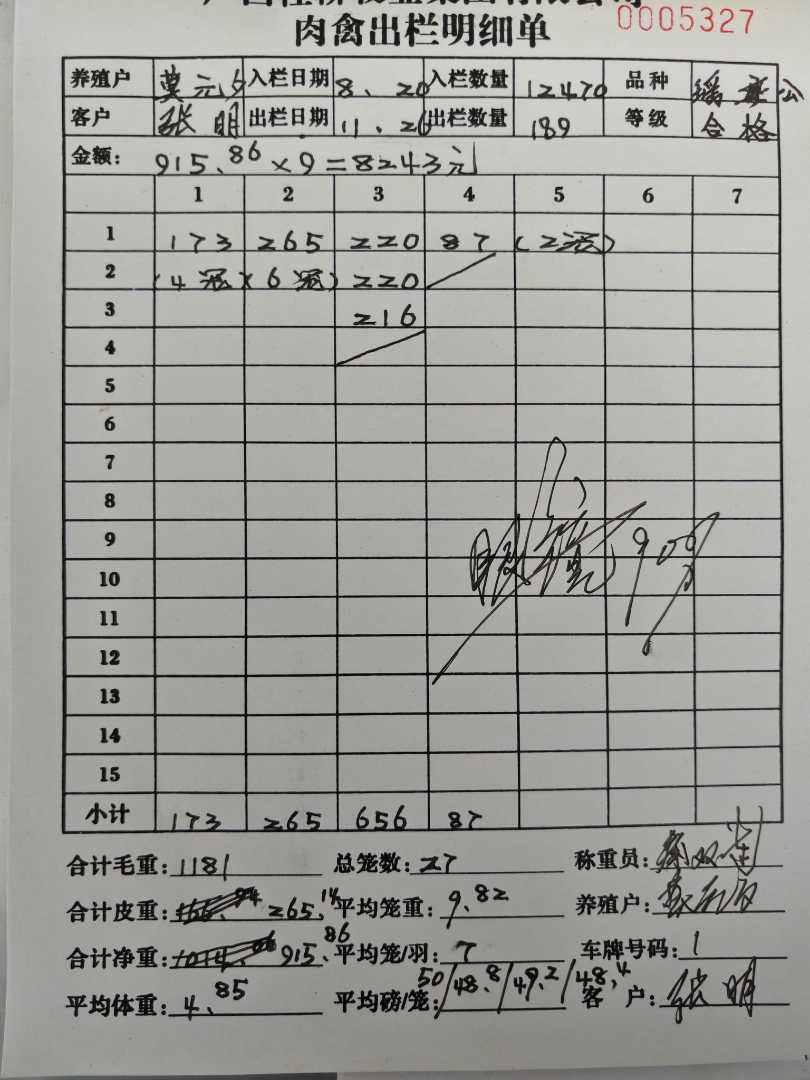 肉禽出栏明细单 0005327
养殖户 莫元 入栏日期 8.20 入栏数量 12470 品种 瑶 公
客户 张明 出栏日期 11.26 出栏数量 189 等级 合格
金额: 915.86×9=8243元
1 2 3 4 5 6 7
1 173 265 220 87 (2笼)
2 (4笼)(6笼) 220
3 216
4
5
6
7
8
9
10
11
12
13
14
15
小计 173 265 656 87
合计毛重: 1181 总笼数: 27 称重员:
合计皮重: 265.14 平均笼重: 9.82 养殖户:
合计净重: 915.86 平均笼/羽: 7 车牌号码: 1
平均体重: 4.85 平均磅/笼: 50/48.8/49.2/48.4 客 户: 张明